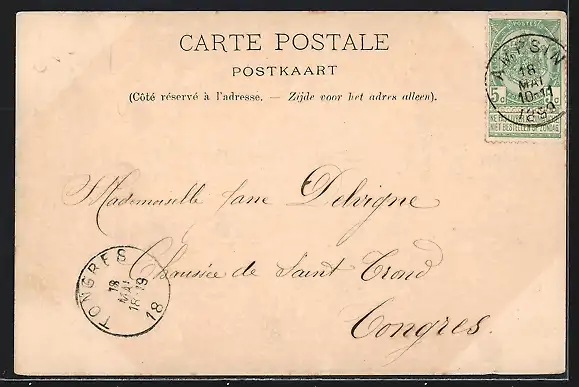 CARTE POSTALE
POSTKAART
(Côté réservé à l'adresse. — Zijde voor het adres alleen).
AMPSIN
18
MAI
10-11
5c
NIET BESTELLEN OP ZONDAG
Mademoiselle Jane Delvigne
Chaussée de Saint Trond
Tongres.
TONGRES
18
MAI
18-19
18